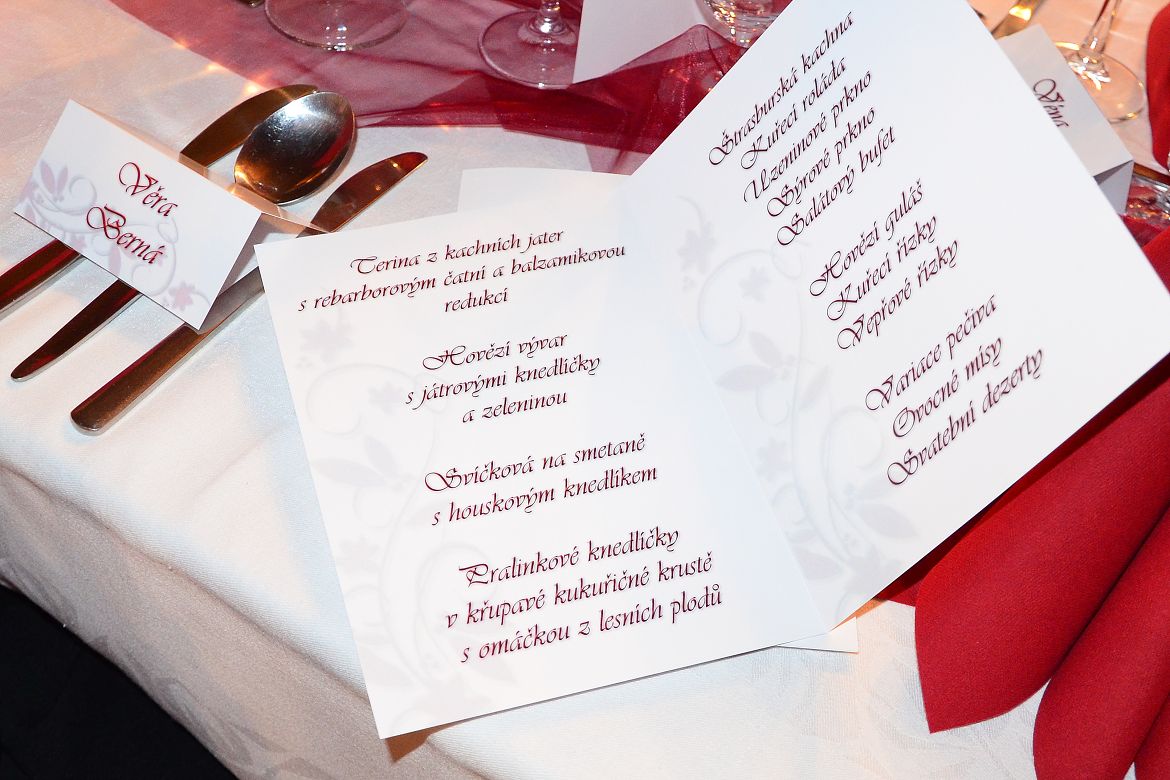 Věra
Berná
Terina z kachních jater
s rebarborovým čatní a balzamikovou
redukcí
Hovězí vývar
s játrovými knedlíčky
a zeleninou
Svíčková na smetaně
s houskovým knedlíkem
Pralinkové knedlíčky
v křupavé kukuřičné krustě
s omáčkou z lesních plodů
Štrasburská kachna
Kuřecí roláda
Uzeninové prkno
Sýrové prkno
Salátový bufet
Hovězí guláš
Kuřecí řízky
Vepřové řízky
Variace pečiva
Ovocné mísy
Svatební dezerty